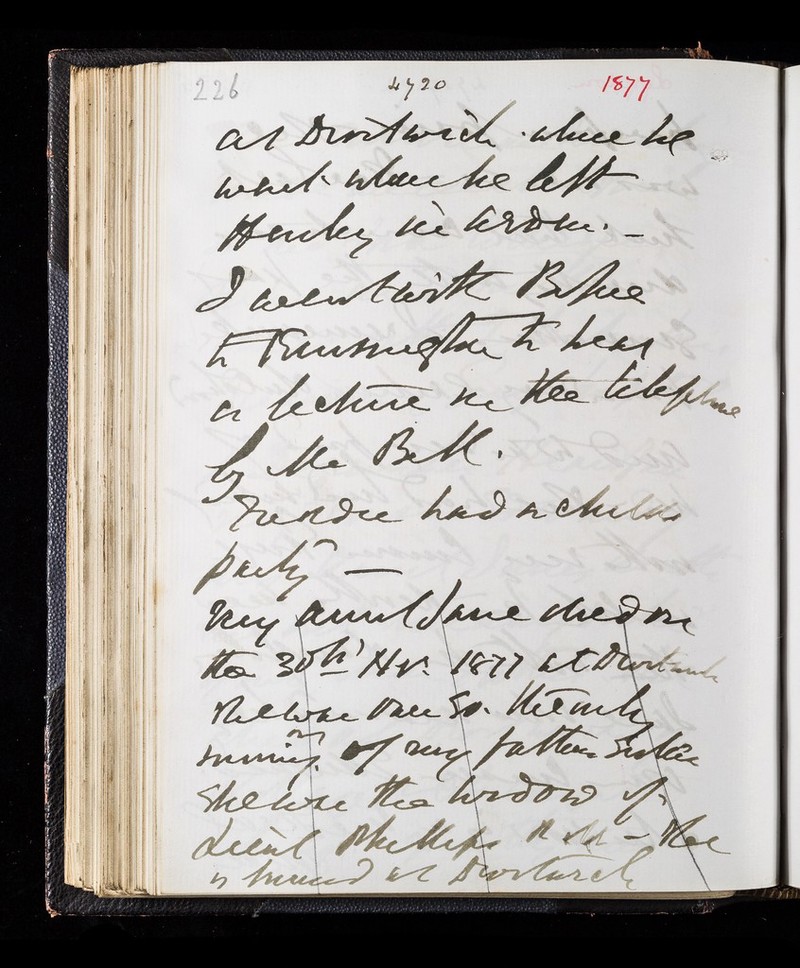 226 4720 1877
at Droitwich where he
went when he left
Henley in Arden. -
I went with Blue
to Kensington to hear
a lecture on the telephone
by Mr Bell.
had a childs
party -
My Aunt Jane died on
the 30th Nov. 1877 at Droitwich
She was over 80. the only
surviving one of my fathers Sisters
She was the widow of
Lieut Phillips R.N. - She
is buried at Droitwich